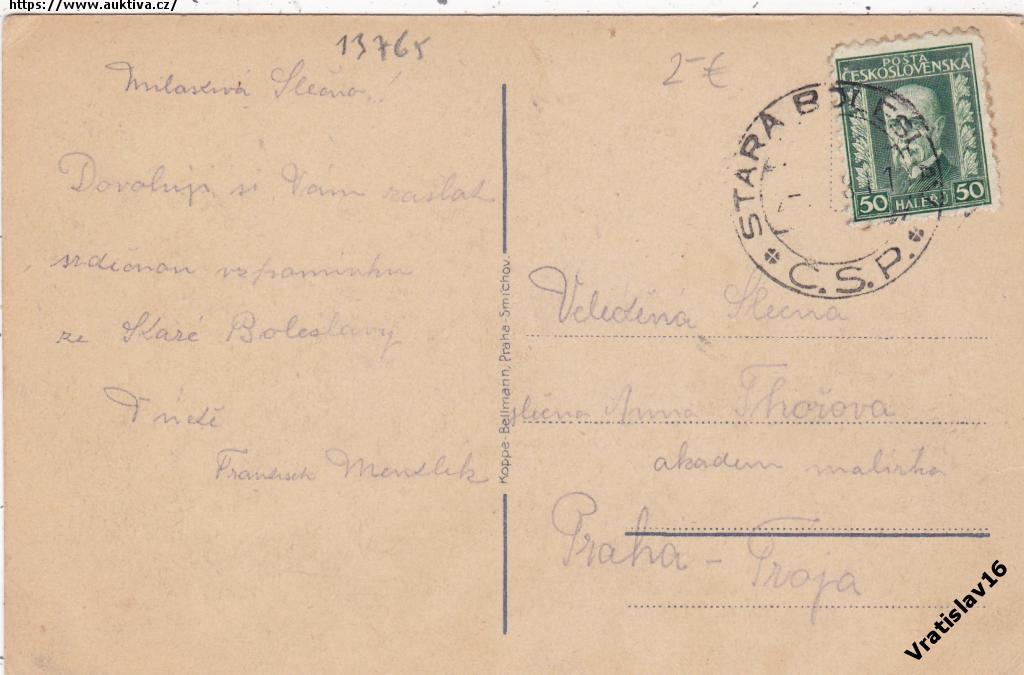 https://www.auktiva.cz/
13765
2-€
Milostivá Slečno!
Dovoluji si Vám zaslat
srdečnou vzpomínku
ze Staré Boleslavy
V úctě
František
POSTA
ČESKOSLOVENSKÁ
50 HALÉŘŮ 50
STARÁ BOLESL
Č.S.P.
Koppe-Bellmann, Praha-Smíchov.
Veleděná Slečna
slečna Anna Thořová
akadem malířka
Praha - Troja
Vratislav16